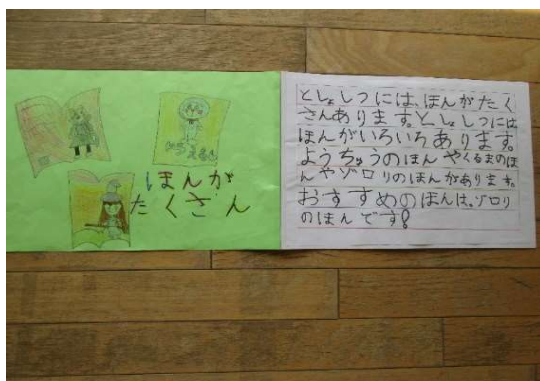 どうえもん
ほんが
たくさん
としょしつには、ほんがたく
さんあります。としょしつには
ほんがいろいろあります。
ようちゅうのほんやくるまのほ
んやゾロリのほんがあります。
おすすめのほんは、ゾロリ
のほんです!